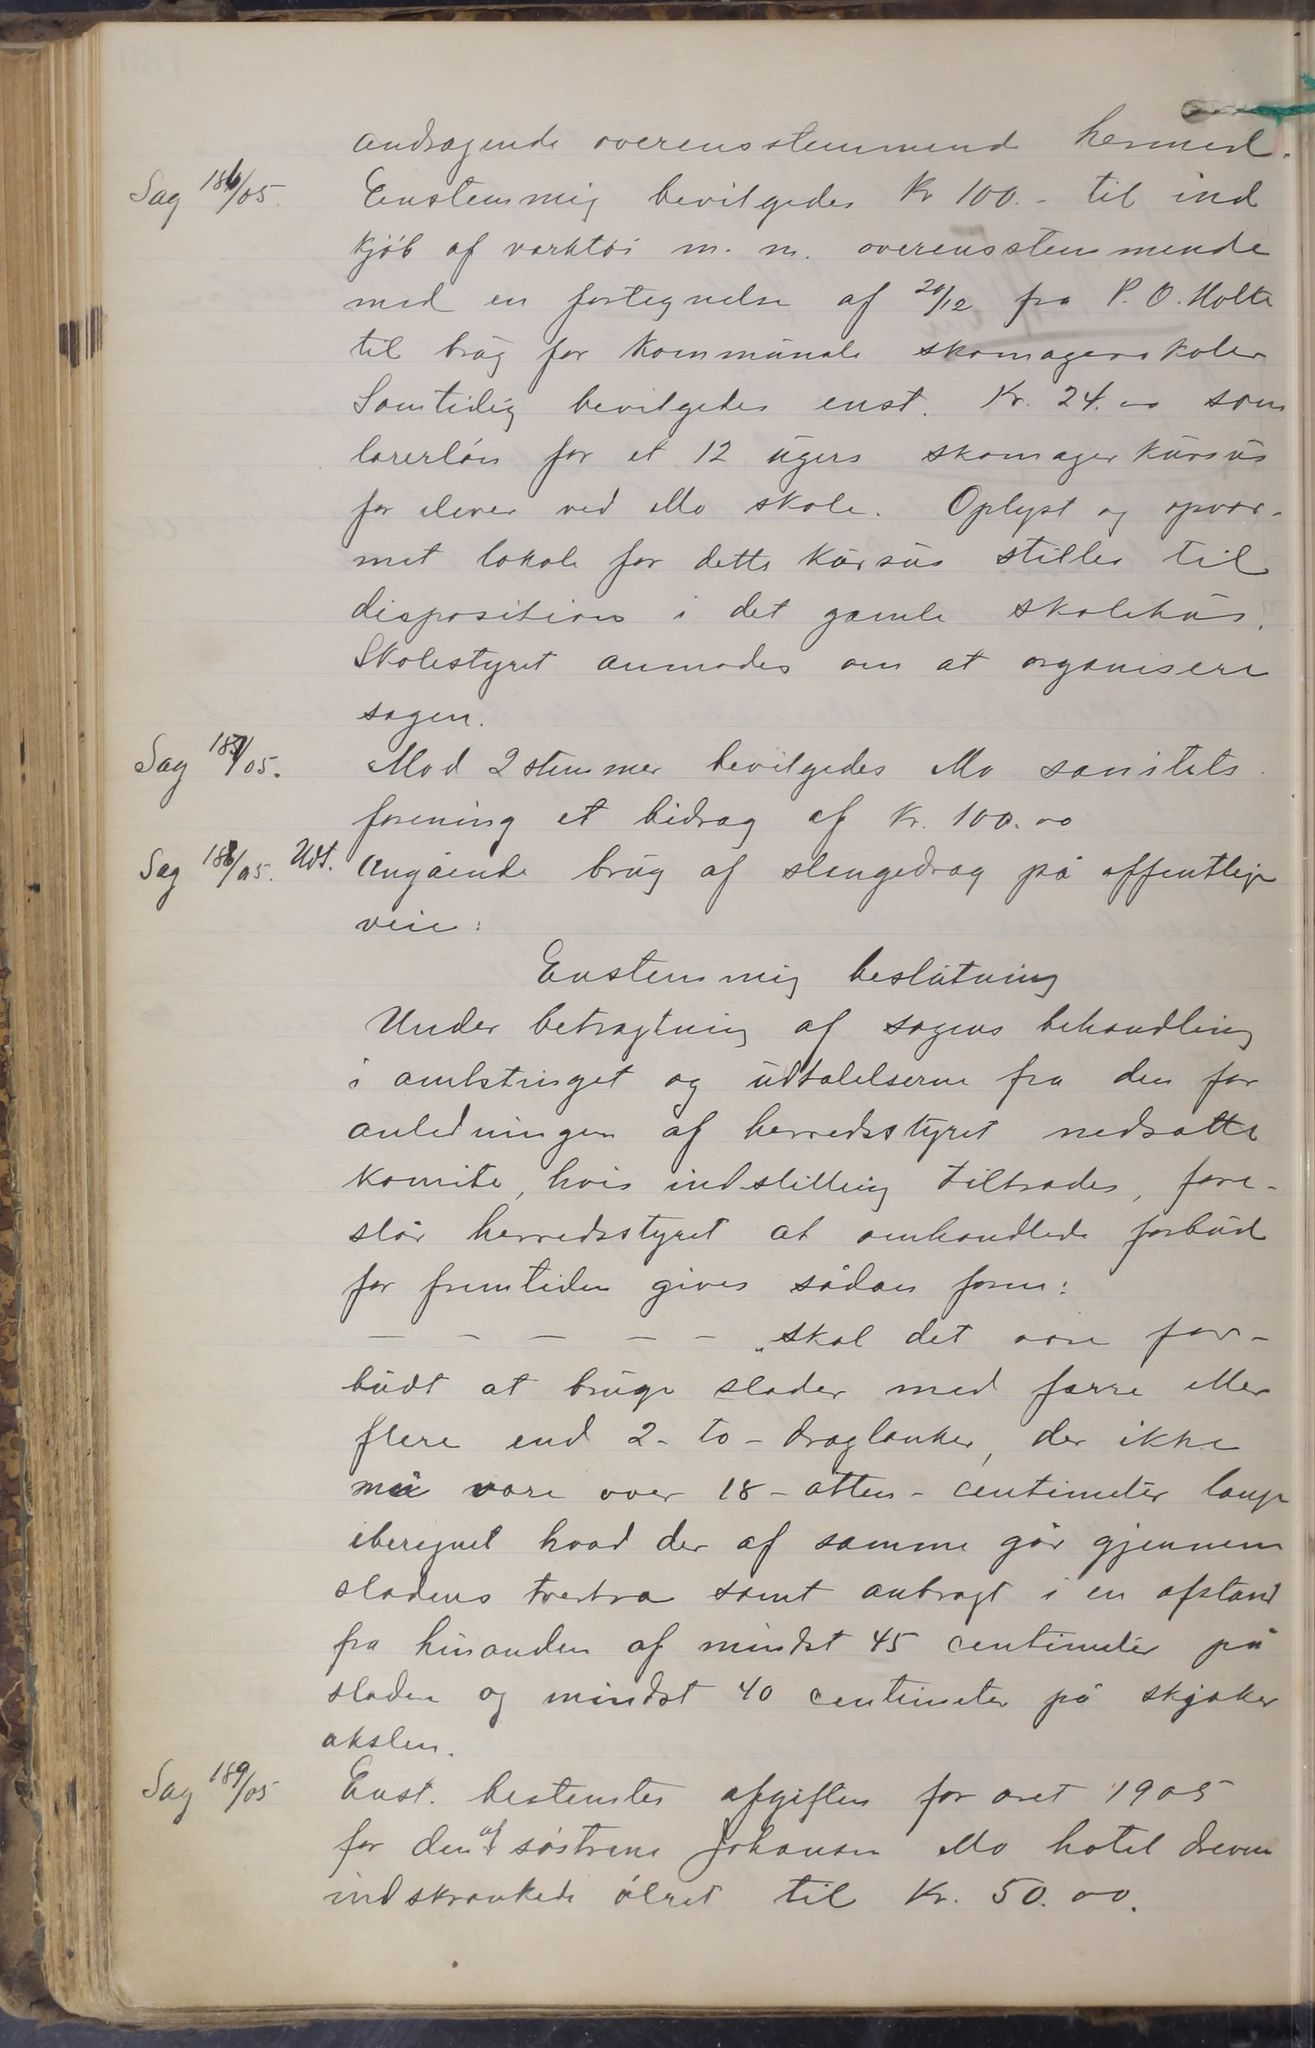 andragende overensstemmend hermed.
Sag 186/05. Enstemmig bevilgedes Kr 100.- til ind
kjøb af værktøi m. m. overensstemmende
med en fortegnelse af 20/12 fra P. O. Holte
til brug for kommunale skomagerskoler
Samtidig bevilgedes enst. Kr. 24.00 som
lærerløn for et 12 ugers skomagerkursus
for elever ved Mo skole. Oplyst og opvar-
met lokale for dette kursus stilles til
disposition i det gamle skolehus.
Skolestyret anmodes om at organisere
sagen.
Sag 187/05. Mod 2 stemmer bevilgedes Mo sanitets
forening et bidrag af Kr. 100.00
Sag 188/05. Udt. Angående brug af slængedrag på offentlige
veie:
Enstemmig beslutning
Under betragtning af sagens behandling
i amtstinget og udtalelserne fra den for
anledningen af herredsstyret nedsatte
komite, hvis indstilling tiltrædes, fore-
slår herredsstyret at omhandlede forbud
for fremtiden gives sådan form:
— — — — — "skal det være for-
budt at bruge slæder med færre eller
flere end 2 - to - draglænker, der ikke
må være over 18 - atten - centimeter lange
iberegnet hvad der af samme går gjennem
slædens tvertræ samt anbragt i en afstand
fra hinanden af mindst 45 centimeter på
slæden og mindst 40 centimeter på skjæker
akslen.
Sag 189/05 Enst. bestemtes afgiften for året 1905
for den af søstrene Johansen Mo hotel drevne
indskrænkede ølret til Kr. 50.00.